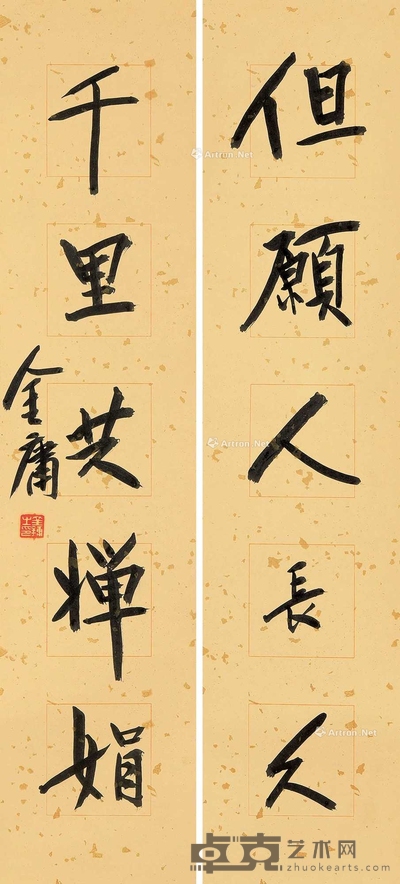 但願人長久
千里共嬋娟
金庸
Artron.Net
Artron.Net
Artron.Net
卓克艺术网
zhuokearts.com